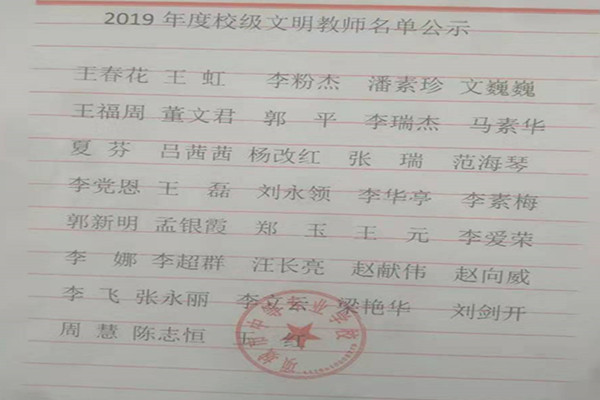 2019 年度校级文明教师名单公示
王春花 王 虹 李粉杰 潘素珍 文巍巍
王福周 董文君 郭 平 李瑞杰 马素华
夏 芬 吕茜茜 杨改红 张 瑞 范海琴
李党恩 王 磊 刘永领 李华亭 李素梅
郭新明 孟银霞 郑 玉 王 元 李爱荣
李 娜 李超群 汪长亮 赵献伟 赵向威
李 飞 张永丽 李立云 梁艳华 刘剑开
周 慧 陈志恒 王 红